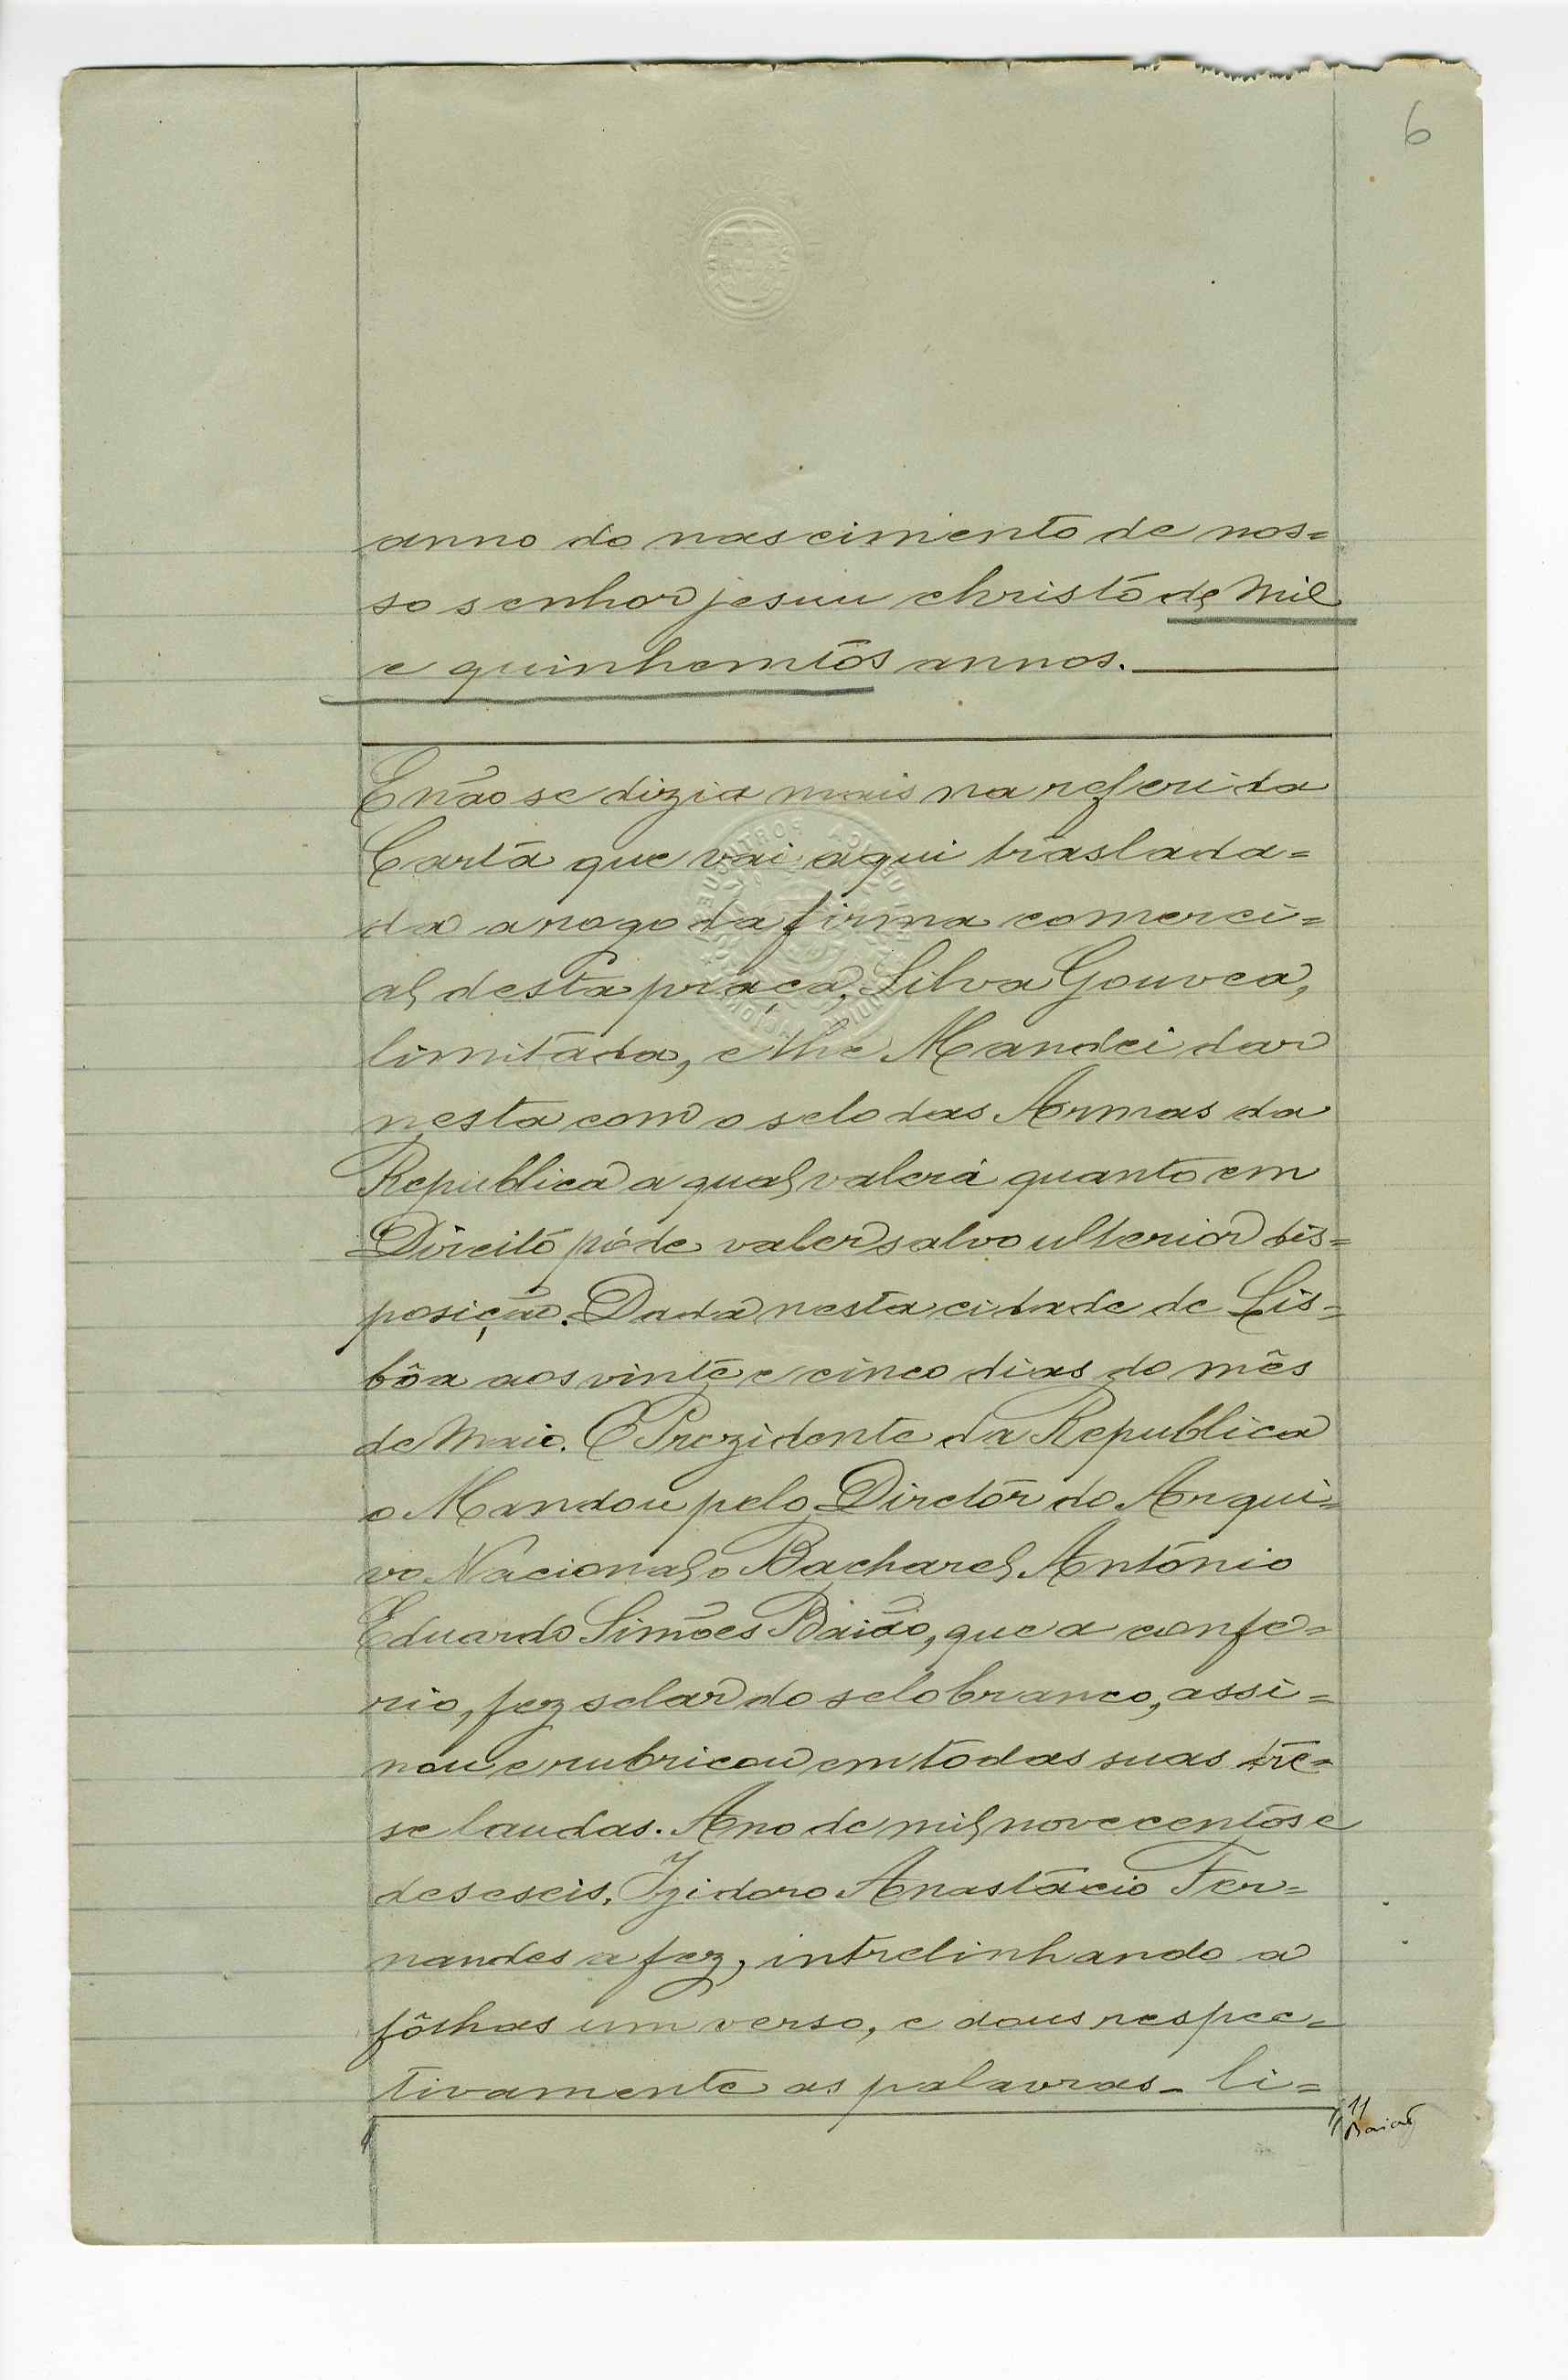 6
anno do nascimento de nos=
so senhor jesuu christo de mil
e quinhemtos annos.
E não se dizia mais na referida
Carta que vai aqui traslada=
da a rogo da firma comerci=
al desta praça, Silva Gouvea,
limitada, e lhe Mandei dar
nesta com o selo das Armas da
Republica a qual valerá quanto em
Direito póde valer salvo ulterior dis=
posição. Dada nesta cidade de Lis=
bôa aos vinte e cinco dias do mês
de Maio. O Prezidente da Republica
o Mandou pelo Diretôr do Arqui=
vo Nacional o Bacharel António
Eduardo Simões Baião, que a confe=
rio, fez selar do selo branco, assi=
nou e rubricou em todas suas tre=
se laudas. Ano de mil novecentos e
deseseis. Izidoro Anastácio Fer=
nandes a fez, intrelinhando a
fôlhas um verso, e dous respec=
tivamente as palavras - li=
11
Baião